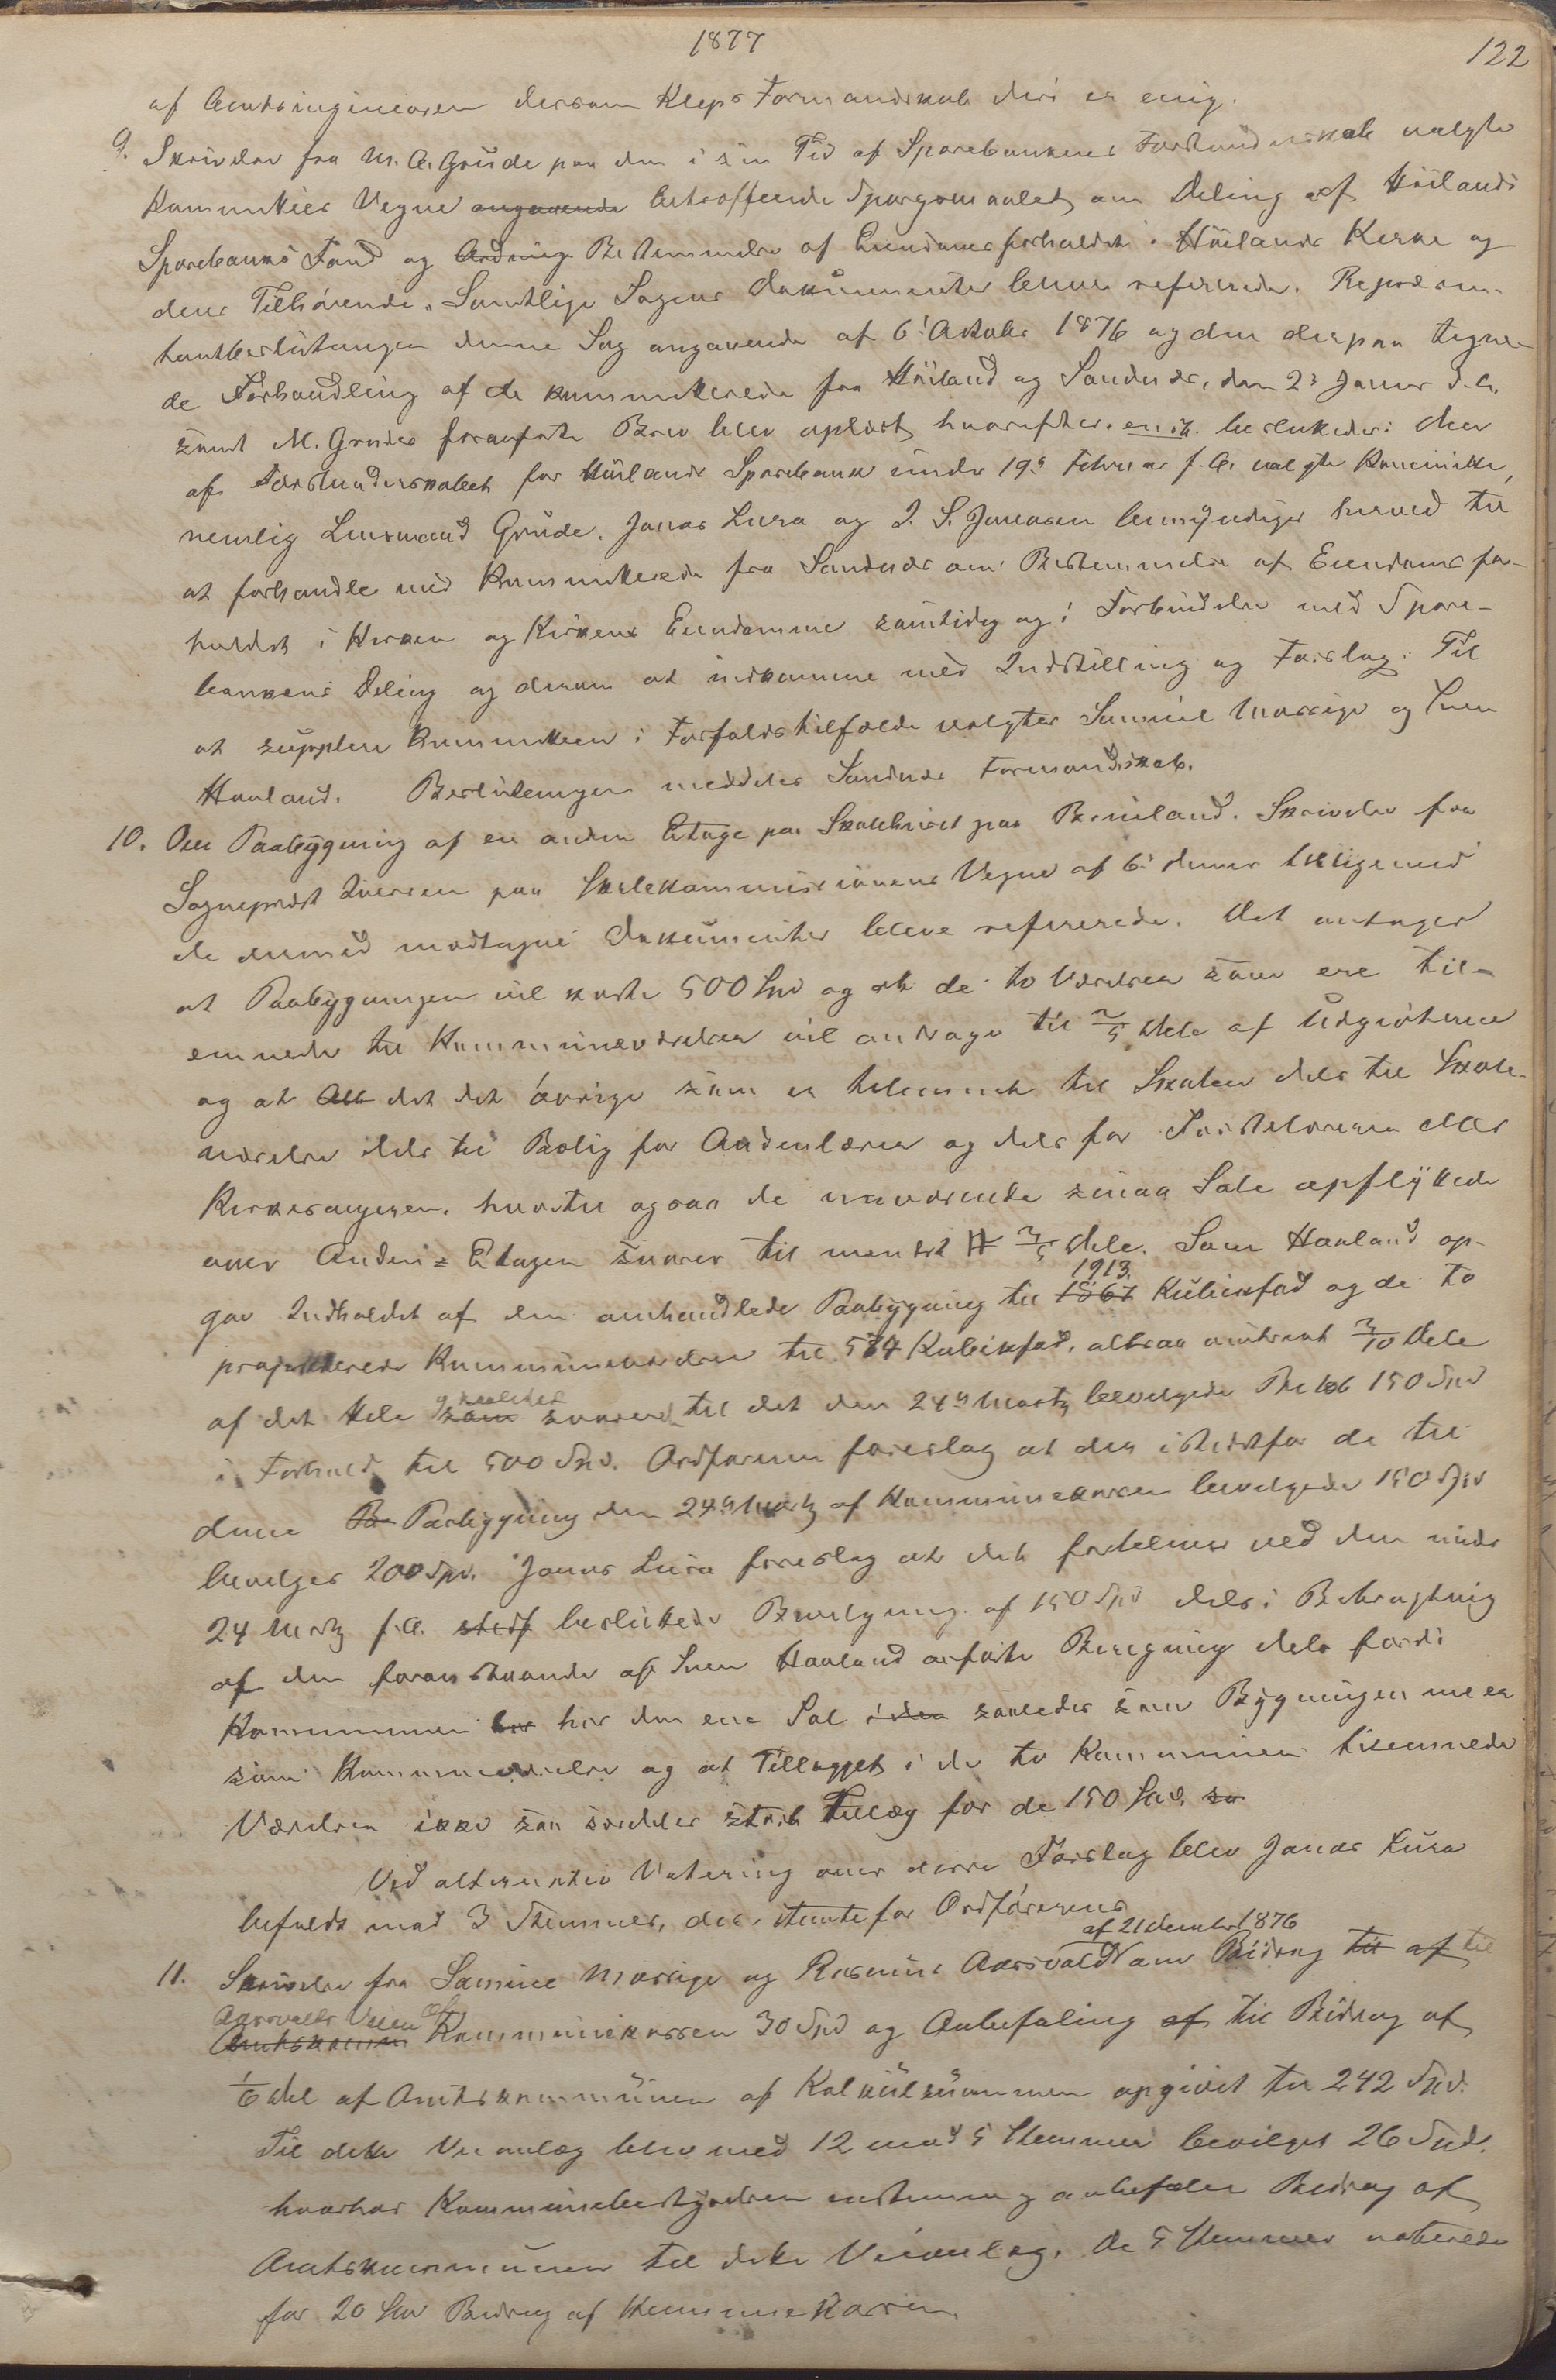 1877
122
af Amtsingeniøren dersom Kleps Formandskab deri er enig.
9. Skrivelse fra M. A. Grude paa den i sin Tid af Sparebankens Forstanderskab valgte
Kommitees Vegne angaaende betræffende Spørgsmaalet om Deling af Höilands
Sparebanks Fond og Bestemmelse af Eiendomsforholdet i Höilands Kirke og
dens Tilhörende. Samtlige Sagens Dokumenter bleve refererede. Repræsen-
tantbeslutningen denne Sag angaaende af 6' Oktober 1876 og den derpaa tagne-
de Forhandling af de kommitterede fra Höiland og Sandnæs, den 23 Januar d. A.
samt M. Grudes foranførte Brev blev oplæst, hvorefter enst. besluttedes: Den
af Forstanderskabet for Höilands Sparebank under 19de Februar f. A. valgte Kommitte,
nemlig Lensmand Grude, Jonas Lura og J. S. Jonassen bemyndiges herved til
at forhandle med Kommitterede fra Sandnæs om Bestemmelse af Eiendomsfor-
holdet i Kirken og Kirkens Eiendomme samtidig og i Forbindelse med Spare-
bankens Deling og derom at indkomme med Indstilling og Forslag. Til
at supplere Kommitteen i Forfaldstilfælde valgtes Samuel Wassige og Sven
Haaland. Beslutningen meddeles Sandnæs Formandskab.
10. Om Paabygning af en anden Etage paa Skolehuset paa Brueland. Skrivelse fra
Sogneprest Iversen paa Skolekommissionens Vegne af 6' dennes tilligemed
de dermed modtagne Dokumenter bleve refererede. Det antages
at Paabygningen vil koste 500 Spd og at de to Værelser som ere til-
emnede til Kommuneværelser vil andrage til 2/5 Dele af Udgivterne
og at Alt det det övrige som er tilemnet til Skolen dels til Skole-
værelse dels til Bolig for Andenlærer og dels for Förstelæreren eller
Kirkesangeren, hvortil ogsaa de nuværende smaa Sale opflyttede
over Anden Etagen svarer til mindst 3/5 Dele. Sven Haaland op-
gav Indholdet af den omhandlede Paabygning til 1867 1913 Kubikfod og de to
projekterede Kommuneværelser til 574 Kubikfod, altsaa omtrent 3/10 Dele
af det Hele som svarende til det den 24de Marts bevilgede Belöb 150 Spd
i Forhold til 500 Spd. Ordføreren foreslog at der istedetfor de til
denne Pa Paabygning den 24de Marts af Kommunekassen bevilgede 150 Spd
bevilges 200 Spd. Jonas Lura foreslog at det forbliver ved den under
24 Marts f. A. stedf besluttede Bevilgning af 150 Spd dels i Betragtning
af den foranstaaende af Sven Haaland anførte Beregning dels fordi
Kommunen har har den ene Sal saaledes som Bygningen nu er
som Kommuneværelse og at Tillægget i de to Kommunen tilemnede
Værelser ikke saa særdeles stort Tillæg for de 150 Spd. sa
Ved alternativ Votering over disse Forslag blev Jonas Lura
befulgt mod 3 Stemmer, der stemte for Ordförerens
11. Skrivelse fra Samuel Wassige og Rasmus Aarsvold af 21 Decembr 1876 om Bidrag til af til
Aarsvolds Veien af Amtskommu Kommunekassen 30 Spd og Anbefaling af til Bidrag af
1/6 Del af Amtskommunen af Kalkülsummen opgivet til 242 Spd.
Til dette Veianlæg blev med 12 mod 5 Stemmer bevilget 26 Spd.
hvorhos Kommunebestyrelsen enstemmig anbefaler Bidrag af
Amtskommunen til dette Veianlæg. De 5 Stemmer voterede
for 20 Spd Bidrag af Kommunekassen.